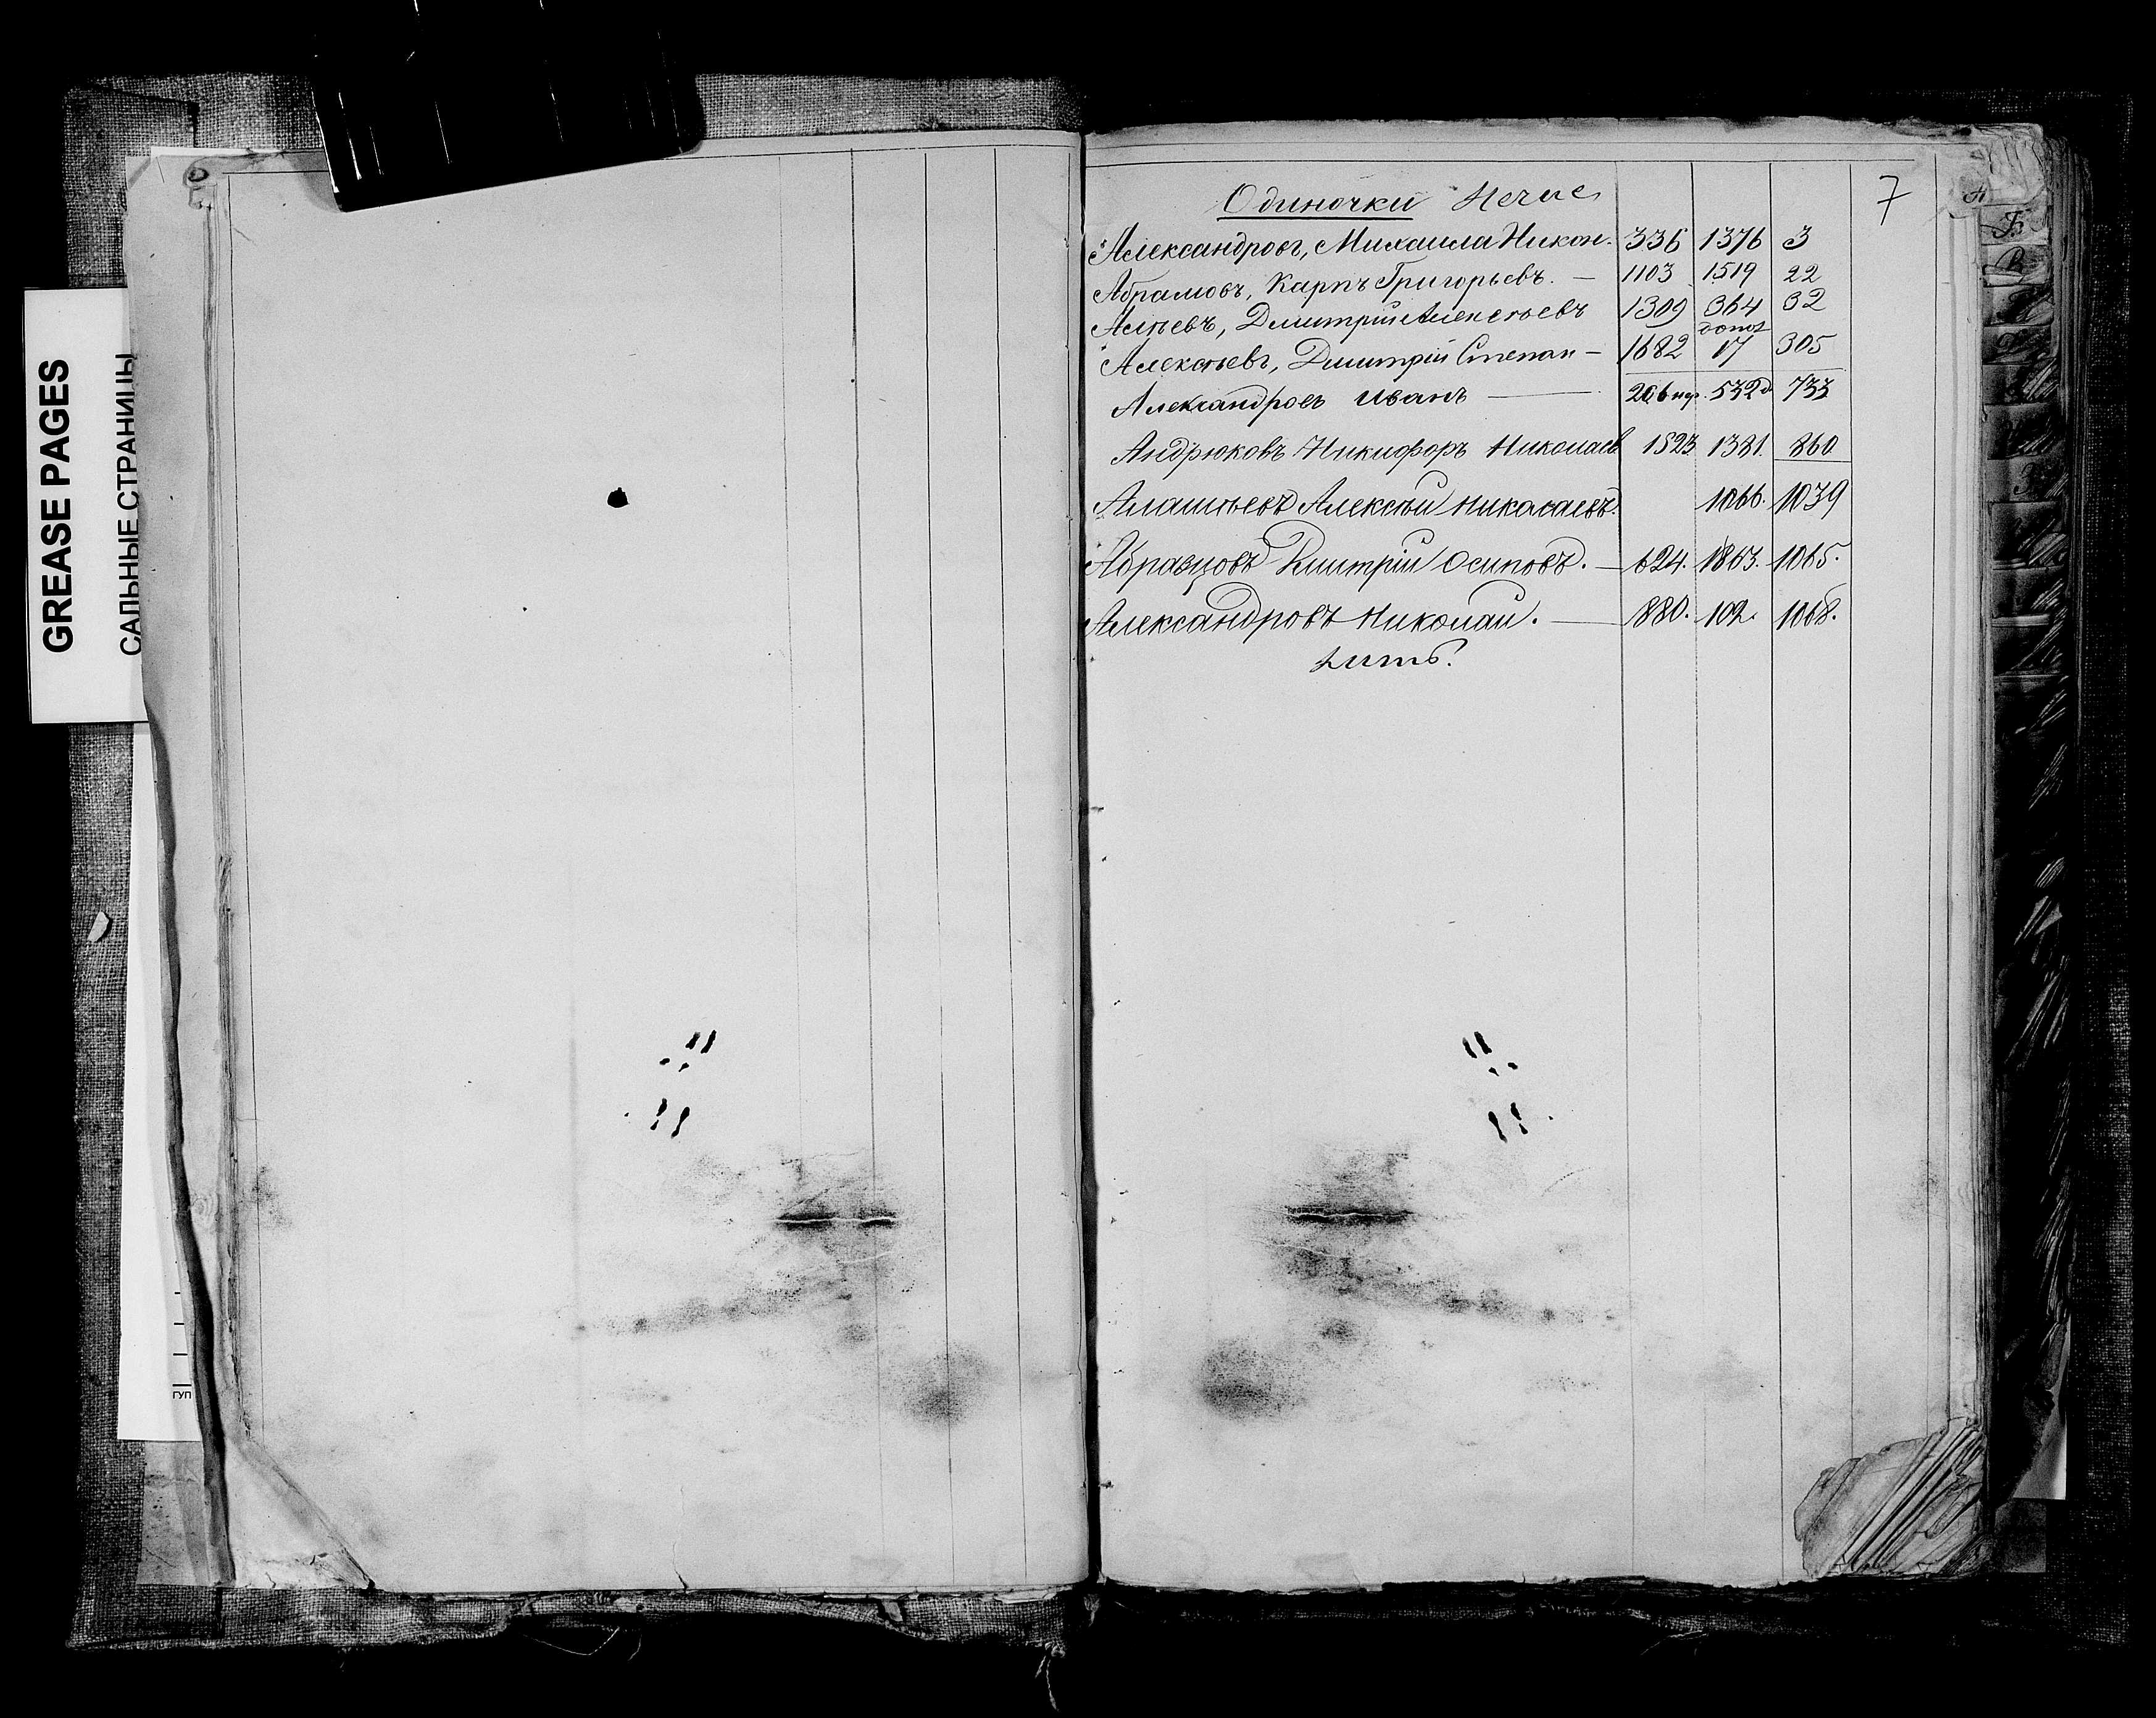 GREASE PAGES
САЛЬНЫЕ СТРАНИЦЫ
ГУП
7
Одиночки
Александровъ, Михаила Никон. 336 1376 3
Абрамовъ, Карпъ Григорьевъ. — 1103 1519 22
Дмитрій Алексѣевъ 1309 364 32
Алексѣевъ, Дмитрій Степан — 1682 17 305
Александровъ Иванъ — 206 532 733
Андрюковъ Никифоръ Николаев 1523 1381. 860
Алексѣй Николаевъ. 1066. 1039
Абразцовъ Дмитрій Осиповъ. — 624. 1863. 1065.
Александровъ Николай. — 880. 102. 1068.